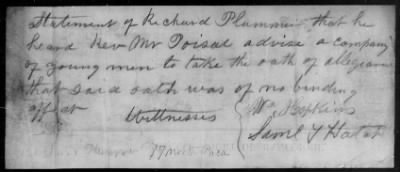 Statement of Richard Plummer that he
heard Rev Mr Poisal advise a company
of young men to take the oath of allegiance
that said oath was of no binding
eff at
Wittnesses
Wm Hopkins
Saml Y
77 North Paca